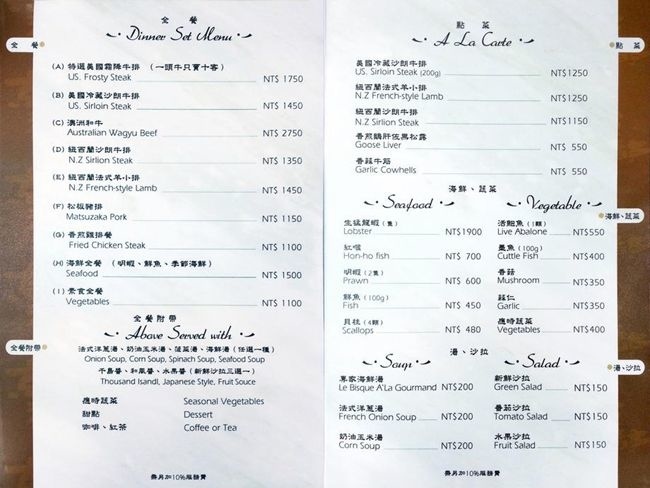 全餐
Dinner Set Menu
全 餐
(A) 特選美國霜降牛排 (一頭牛只賣十客)
US. Frosty Steak NT$ 1750
(B) 美國冷藏沙朗牛排
US. Sirloin Steak NT$ 1450
(C) 澳洲和牛
Australian Wagyu Beef NT$ 2750
(D) 紐西蘭沙朗牛排
N.Z Sirlion Steak NT$ 1350
(E) 紐西蘭法式羊小排
N.Z French-style Lamb NT$ 1450
(F) 松板豬排
Matsuzaka Pork NT$ 1150
(G) 香煎雞排餐
Fried Chicken Steak NT$ 1100
(H) 海鮮全餐 (明蝦、鮮魚、季節海鮮)
Seafood NT$ 1500
(I) 素食全餐
Vegetables NT$ 1100
全餐附帶
Above Served with
全餐附帶
法式洋蔥湯、奶油玉米湯、菠菜湯、海鮮湯 (任選一種)
Onion Soup, Corn Soup, Spinach Soup, Seafood Soup
千島醬、和風醬、水果醬 (新鮮沙拉三選一)
Thousand Isandl, Japanese Style, Fruit Souce
應時蔬菜 Seasonal Vegetables
甜點 Dessert
咖啡、紅茶 Coffee or Tea
需另加10%服務費
點菜
A La Carte
點 菜
美國冷藏沙朗牛排
US. Sirloin Steak (200g) NT$1250
紐西蘭法式羊小排
N.Z French-style Lamb NT$1250
紐西蘭沙朗牛排
N.Z Sirlion Steak NT$1150
香煎鵝肝佐黑松露
Goose Liver NT$ 550
香蒜牛筋
Garlic Cowhells NT$ 550
海鮮、蔬菜
海鮮、蔬菜
Seafood
生猛龍蝦 (隻)
Lobster NT$1900
紅喉
Hon-ho fish NT$ 700
明蝦 (2隻)
Prawn NT$ 600
鮮魚 (100g)
Fish NT$ 450
貝柱 (4顆)
Scallops NT$ 480
Vegetable
活鮑魚 (1顆)
Live Abalone NT$550
墨魚 (100g)
Cuttle Fish NT$400
香菇
Mushroom NT$350
蒜仁
Garlic NT$350
應時蔬菜
Vegetables NT$400
湯、沙拉
湯、沙拉
Soup
專家海鮮湯
Le Bisque A'La Gourmand NT$200
法式洋蔥湯
French Onion Soup NT$200
奶油玉米湯
Corn Soup NT$200
Salad
新鮮沙拉
Green Salad NT$150
番茄沙拉
Tomato Salad NT$150
水果沙拉
Fruit Salad NT$150
需另加10%服務費